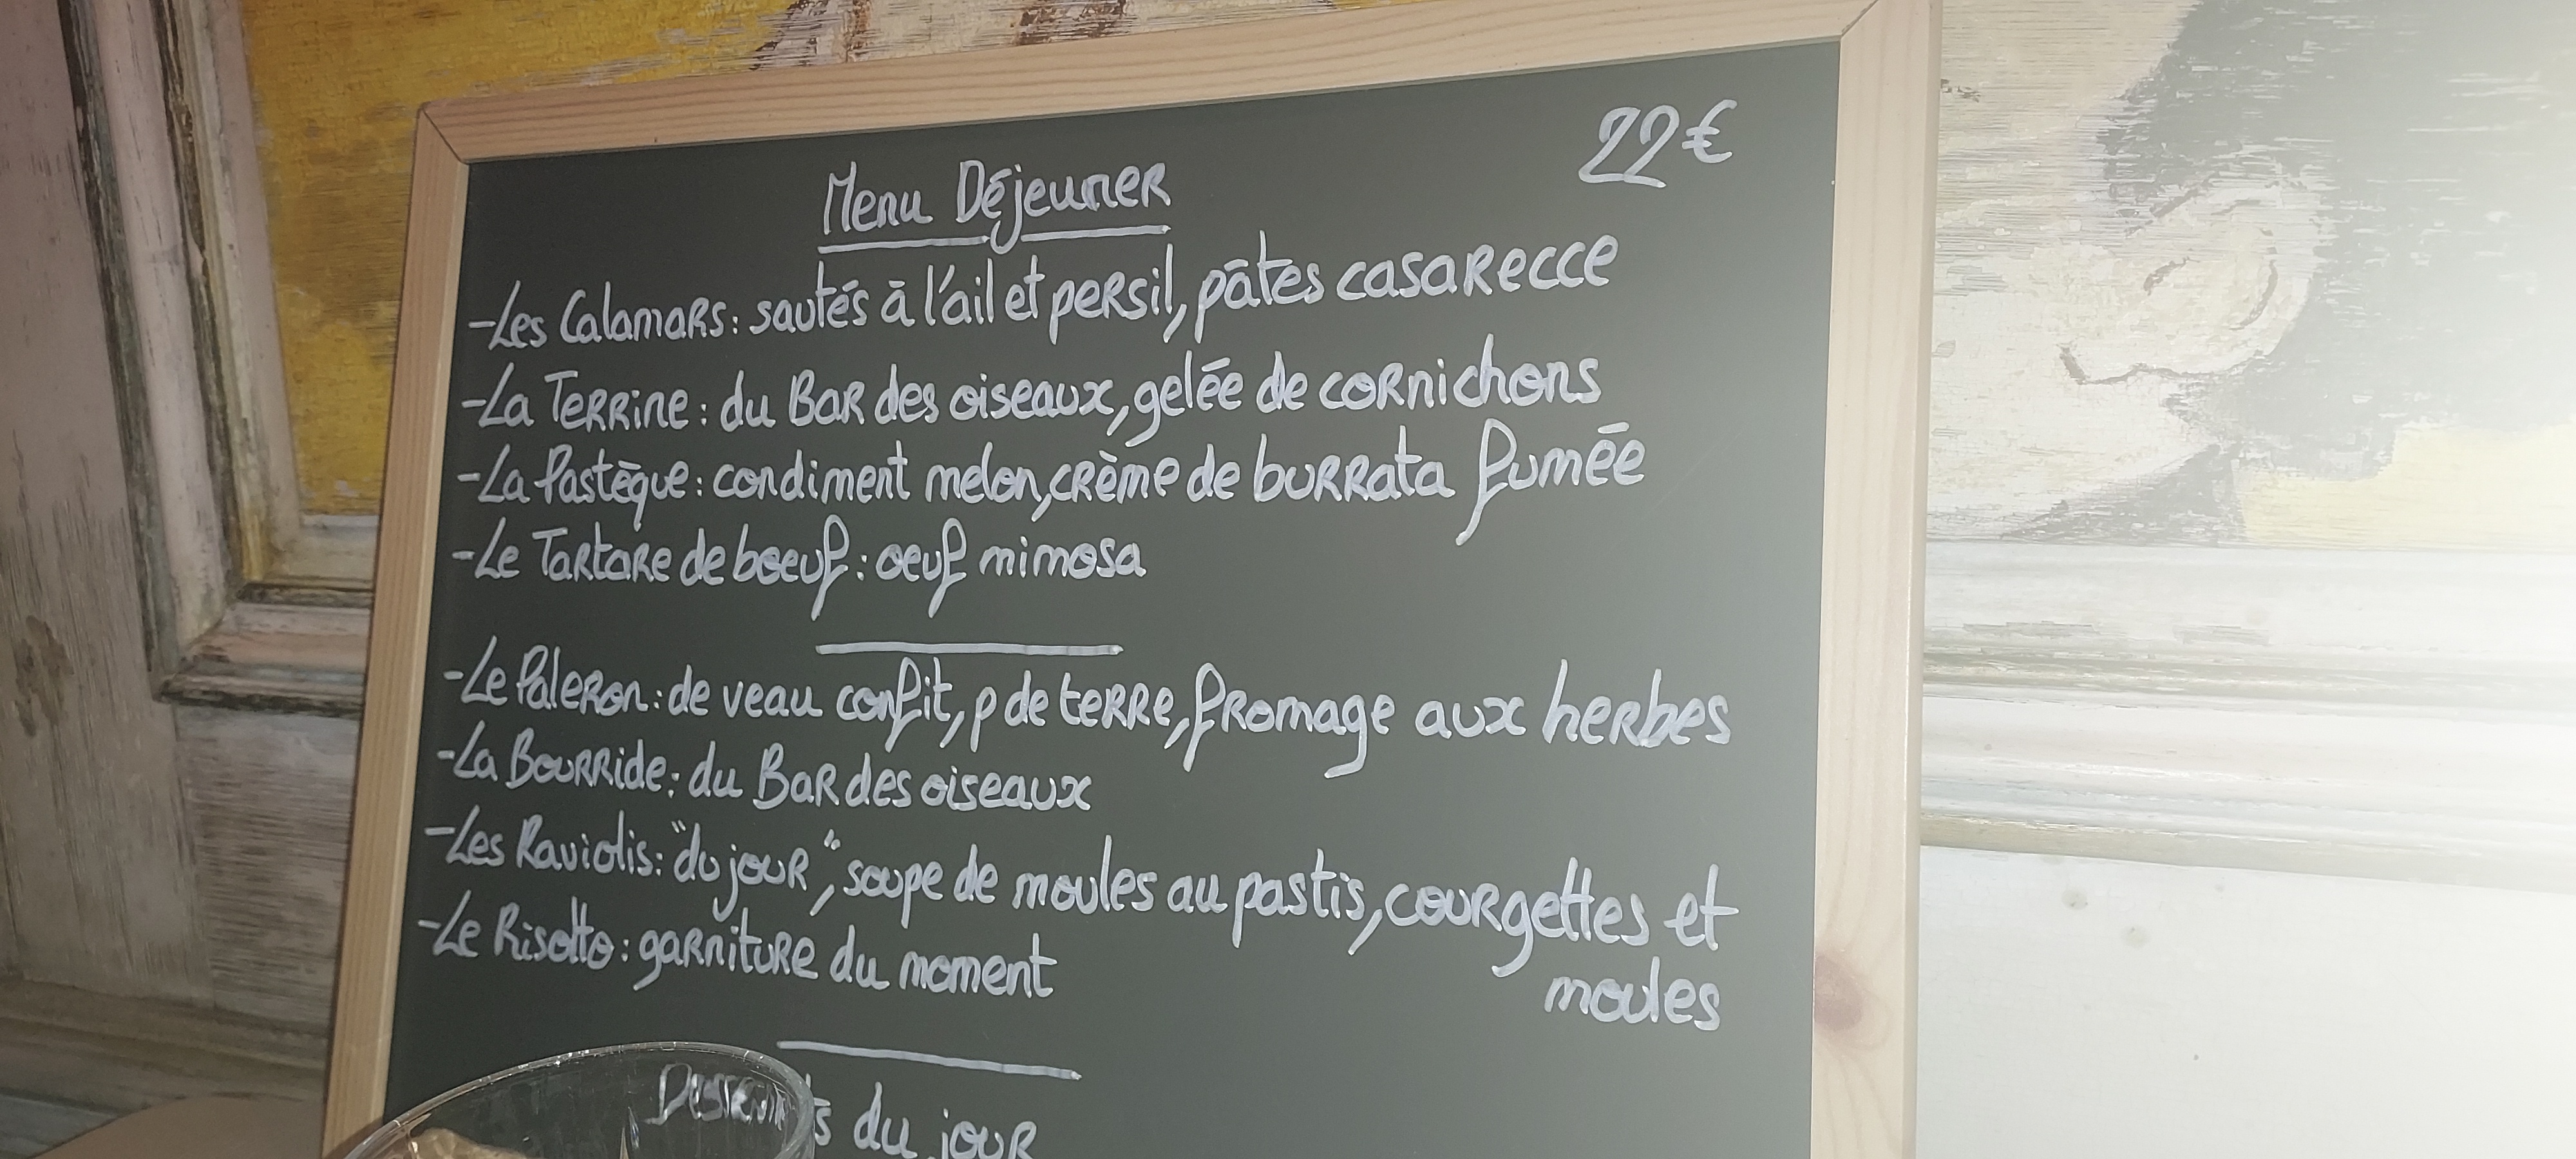 22€
Menu Déjeuner
-Les Calamars: sautés à l'ail et persil, pâtes casarecce
-La Terrine: du Bar des oiseaux, gelée de cornichons
-La Pastèque: condiment melon, crème de burrata fumée
-Le Tartare de boeuf: oeuf mimosa
-Le Paleron: de veau confit, p de terre, fromage aux herbes
-La Bourride: du Bar des oiseaux
-Les Raviolis: "du jour", soupe de moules au pastis, courgettes et
moules
-Le Risotto: garniture du moment
Desserts du jour